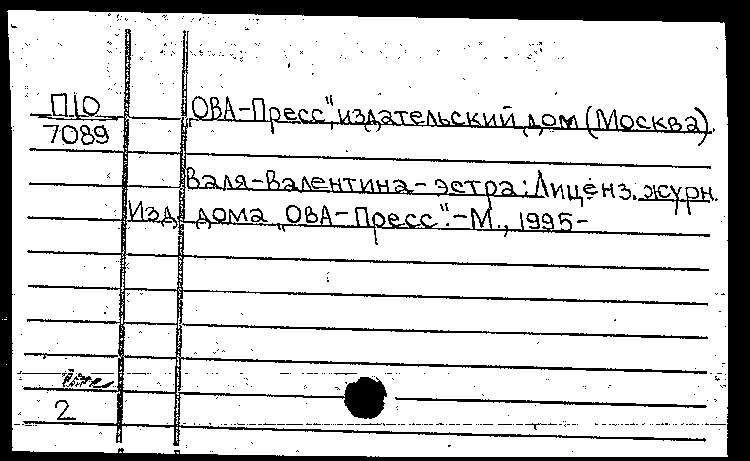 П10
7089
„ОВА-Пресс", издательский дом (Москва).
Валя-Валентина - эстра: Лиценз. журн.
Изд. дома „ОВА-Пресс".-М., 1995-
2